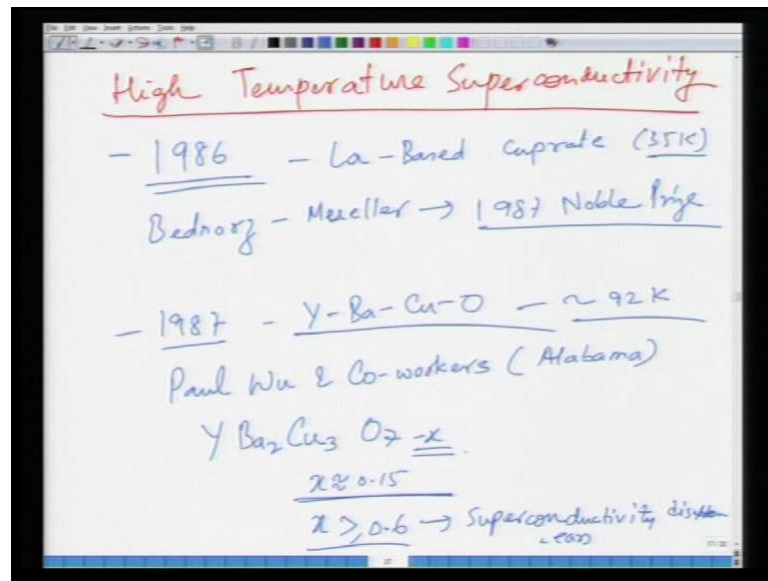 High Temperature Superconductivity
- 1986 - La-Based cuprate (35K)
Bednorz - Mueller → 1987 Noble Prize
- 1987 - Y-Ba-Cu-O - ~ 92 K
Paul Wu & Co-workers (Alabama)
Y Ba2 Cu3 O7-x
x ≈ 0.15
x ≥ 0.6 → Superconductivity disapp
ears